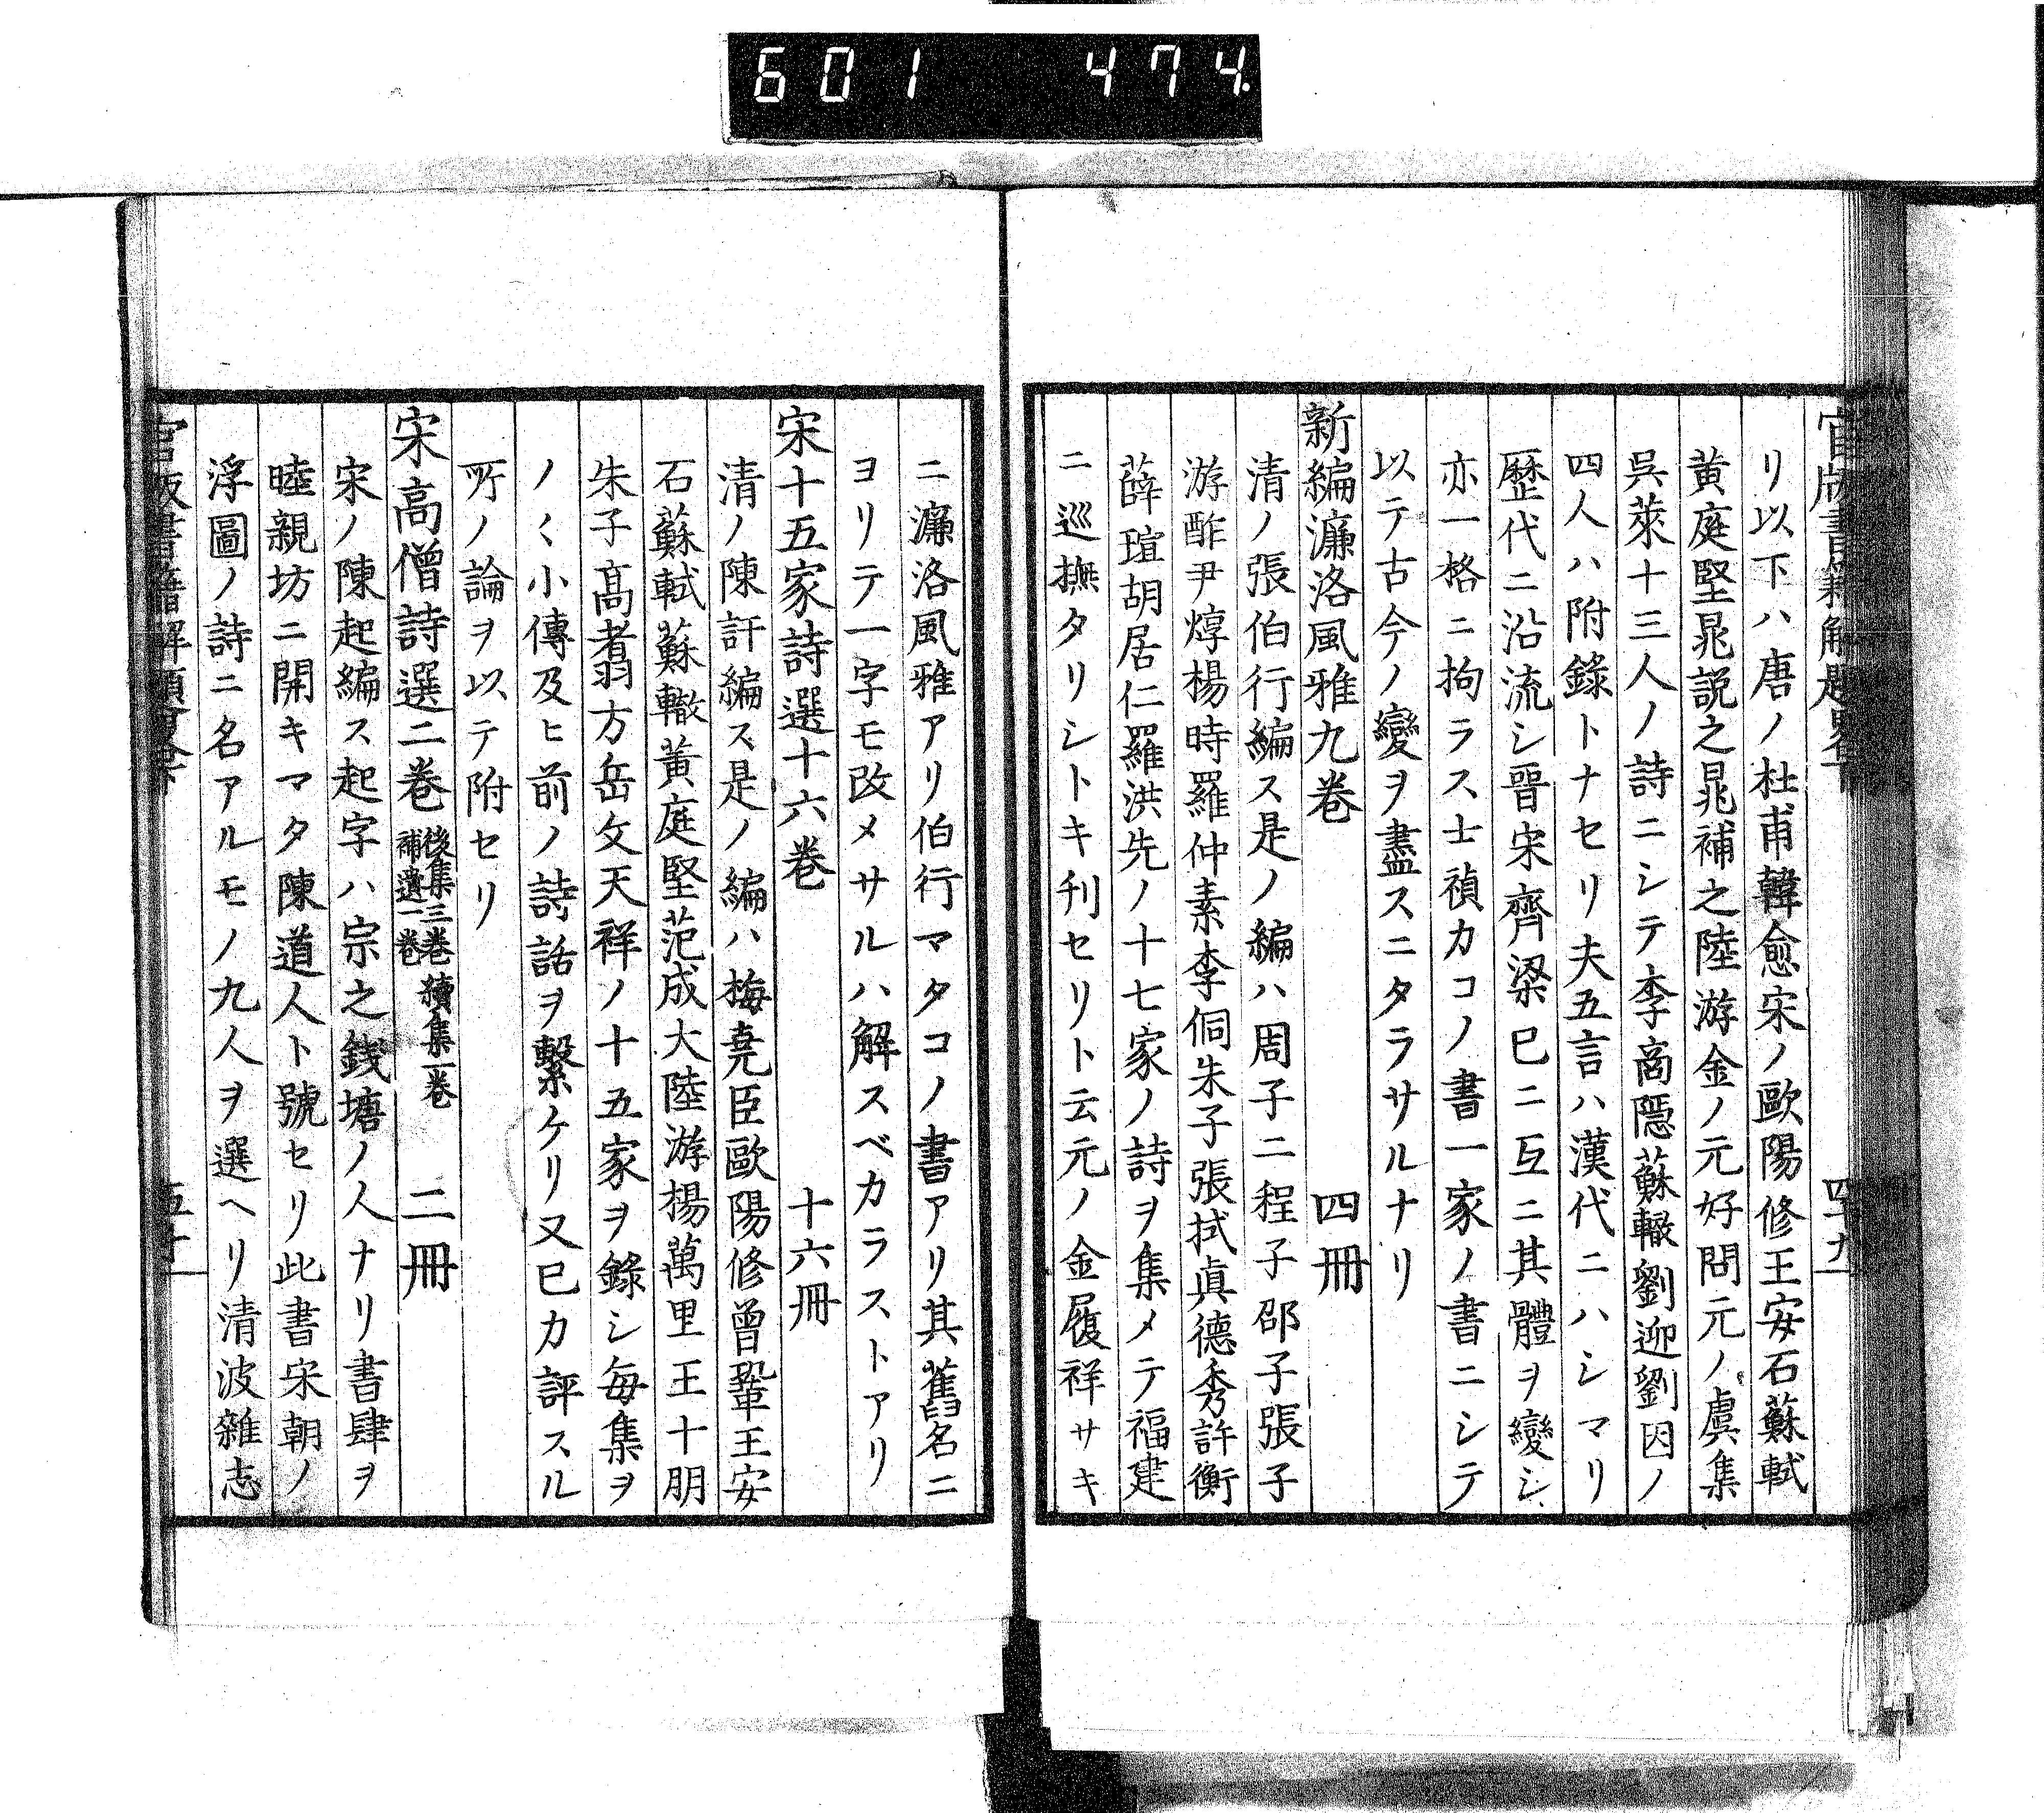 601 474.
官版書籍解題畧下 四十九
リ以下ハ唐ノ杜甫韓愈宋ノ歐陽修王安石蘇軾
黄庭堅晁説之晁補之陸游金ノ元好問元ノ虞集
呉萊十三人ノ詩ニシテ李商隱蘇轍劉迎劉因ノ
四人ハ附錄トナセリ夫五言ハ漢代ニハシマリ
歷代ニ沿流シ晋宋齊梁巳ニ互ニ其體ヲ變シ
亦一格ニ拘ラス士禎カコノ書一家ノ書ニシテ
以テ古今ノ變ヲ盡スニタラサルナリ
新編濂洛風雅九卷 四冊
清ノ張伯行編ス是ノ編ハ周子二程子邵子張子
游酢尹焞楊時羅仲素李侗朱子張拭眞德秀許衡
薛瑄胡居仁羅洪先ノ十七家ノ詩ヲ集メテ福建
ニ巡撫タリシトキ刊セリト云元ノ金履祥サキ
ニ濂洛風雅アリ伯行マタコノ書アリ其舊名ニ
ヨリテ一字モ改メサルハ解スベカラストアリ
宋十五家詩選十六卷 十六冊
清ノ陳訏編ス是ノ編ハ梅堯臣歐陽修曾鞏王安
石蘇軾蘇轍黄庭堅范成大陸游楊萬里王十朋
朱子髙翥方岳文天祥ノ十五家ヲ錄シ毎集ヲ
ノ〱小傳及ヒ前ノ詩話ヲ繫ケリ又巳カ評スル
所ノ論ヲ以テ附セリ
宋高僧詩選二卷 後集三卷 續集一卷 補遺一卷 二冊
宋ノ陳起編ス起字ハ宗之錢塘ノ人ナリ書肆ヲ
睦親坊ニ開キマタ陳道人ト號セリ此書宋朝ノ
浮圖ノ詩ニ名アルモノ九人ヲ選ヘリ清波雜志
官版書籍解題畧下 五十